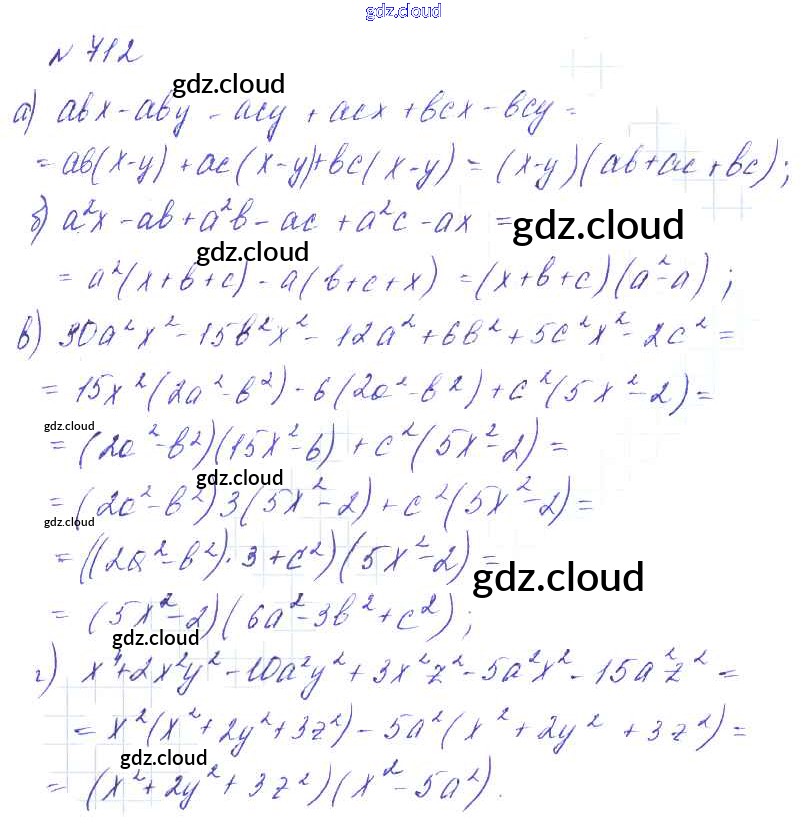 gdz.cloud
N 712
gdz.cloud
а) abx - aby - acy + acx + bcx - bcy =
= ab(x-y) + ac(x-y) + bc(x-y) = (x-y)(ab+ac+bc);
б) a²x - ab + a²b - ac + a²c - ax =
gdz.cloud
gdz.cloud
= a²(x+b+c) - a(b+c+x) = (x+b+c)(a²-a);
в) 30a²x² - 15b²x² - 12a² + 6b² + 5c²x² - 2c² =
= 15x²(2a²-b²) - 6(2a²-b²) + c²(5x²-2) =
gdz.cloud
= (2a²-b²)(15x²-6) + c²(5x²-2) =
gdz.cloud
= (2a²-b²)3(5x²-2) + c²(5x²-2) =
gdz.cloud
= ((2a²-b²)·3+c²)(5x²-2) =
gdz.cloud
= (5x²-2)(6a²-3b²+c²);
gdz.cloud
г) x⁴+2x²y² - 10a²y² + 3x²z² - 5a²x² - 15a²z² =
= x²(x²+2y²+3z²) - 5a²(x²+2y²+3z²) =
gdz.cloud
= (x²+2y²+3z²)(x²-5a²).